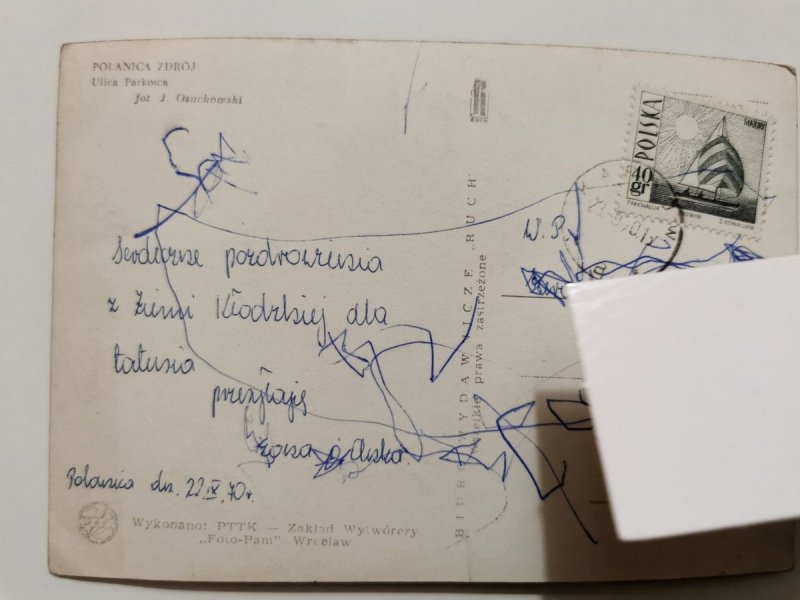 POLANICA ZDRÓJ
Ulica Parkowa
fot J. Osuchowski
RUCH
POLSKA
MAZURY
40 gr
T. MICHALUK
Z. KOWALSKI
W. P.
Serdeczne pozdrowienia
z Ziemi Kłodzkiej dla
tatusia
przesyłają
Polanica dn. 22.IX.70r.
BIURO WYDAWNICZE „RUCH
wszelkie prawa zastrzeżone
Wykonano: PTTK — Zakład Wytwórczy
„Foto-Pam" Wrocław